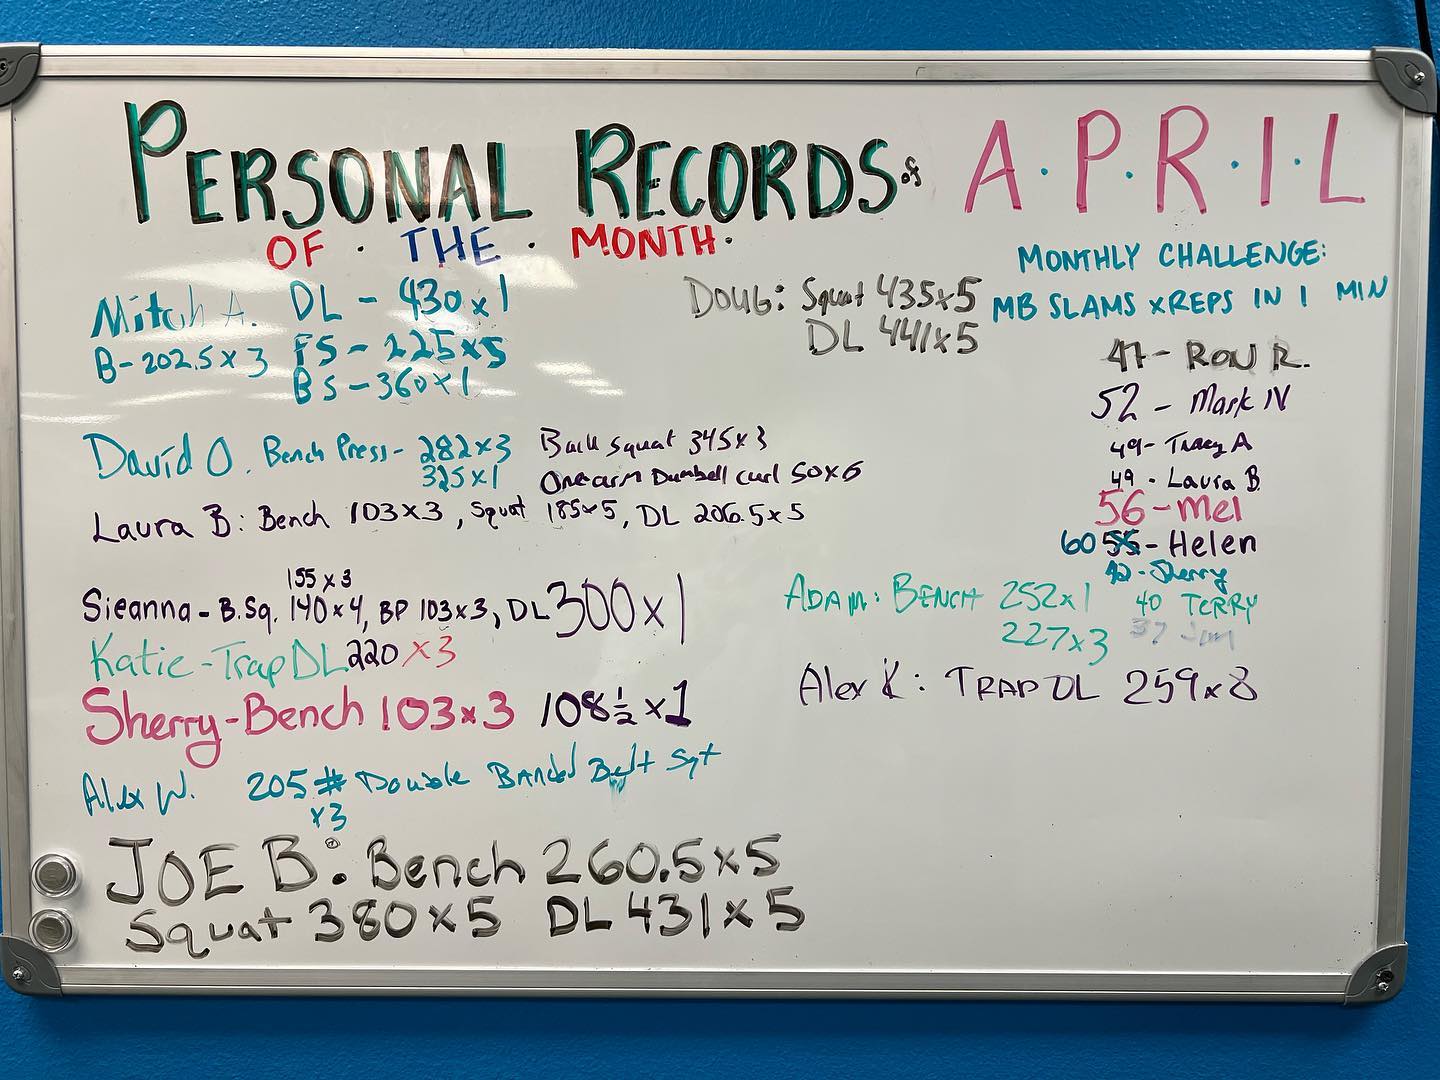 PERSONAL RECORDS of A.P.R.I.L
OF · THE · MONTH ·
Mitch A. DL - 430x1
B-202.5x3 FS - 225x5
BS - 360x1
David O. Bench Press - 282x3 Back Squat 345x3
325x1 One arm Dumbell curl 50x6
Laura B: Bench 103x3, Squat 185x5, DL 206.5x5
155x3
Sieanna - B.Sq. 140x4, BP 103x3, DL 300x1
Katie - Trap DL 220 x3
Sherry - Bench 103x3 108½x1
Alex W. 205# Double Banded Belt Sqt
x3
JOE B: Bench 260.5x5
Squat 380x5 DL 431x5
DOUG: Squat 435x5
DL 441x5
MONTHLY CHALLENGE:
MB SLAMS xREPS IN 1 MIN
47 - RON R.
52 - Mark N
49 - Tracy A
49 - Laura B
56 - Mel
60 55 - Helen
42 - Sherry
40 TERRY
37 Jim
ADAM: BENCH 252x1
227x3
Alex K: TRAP DL 259x8